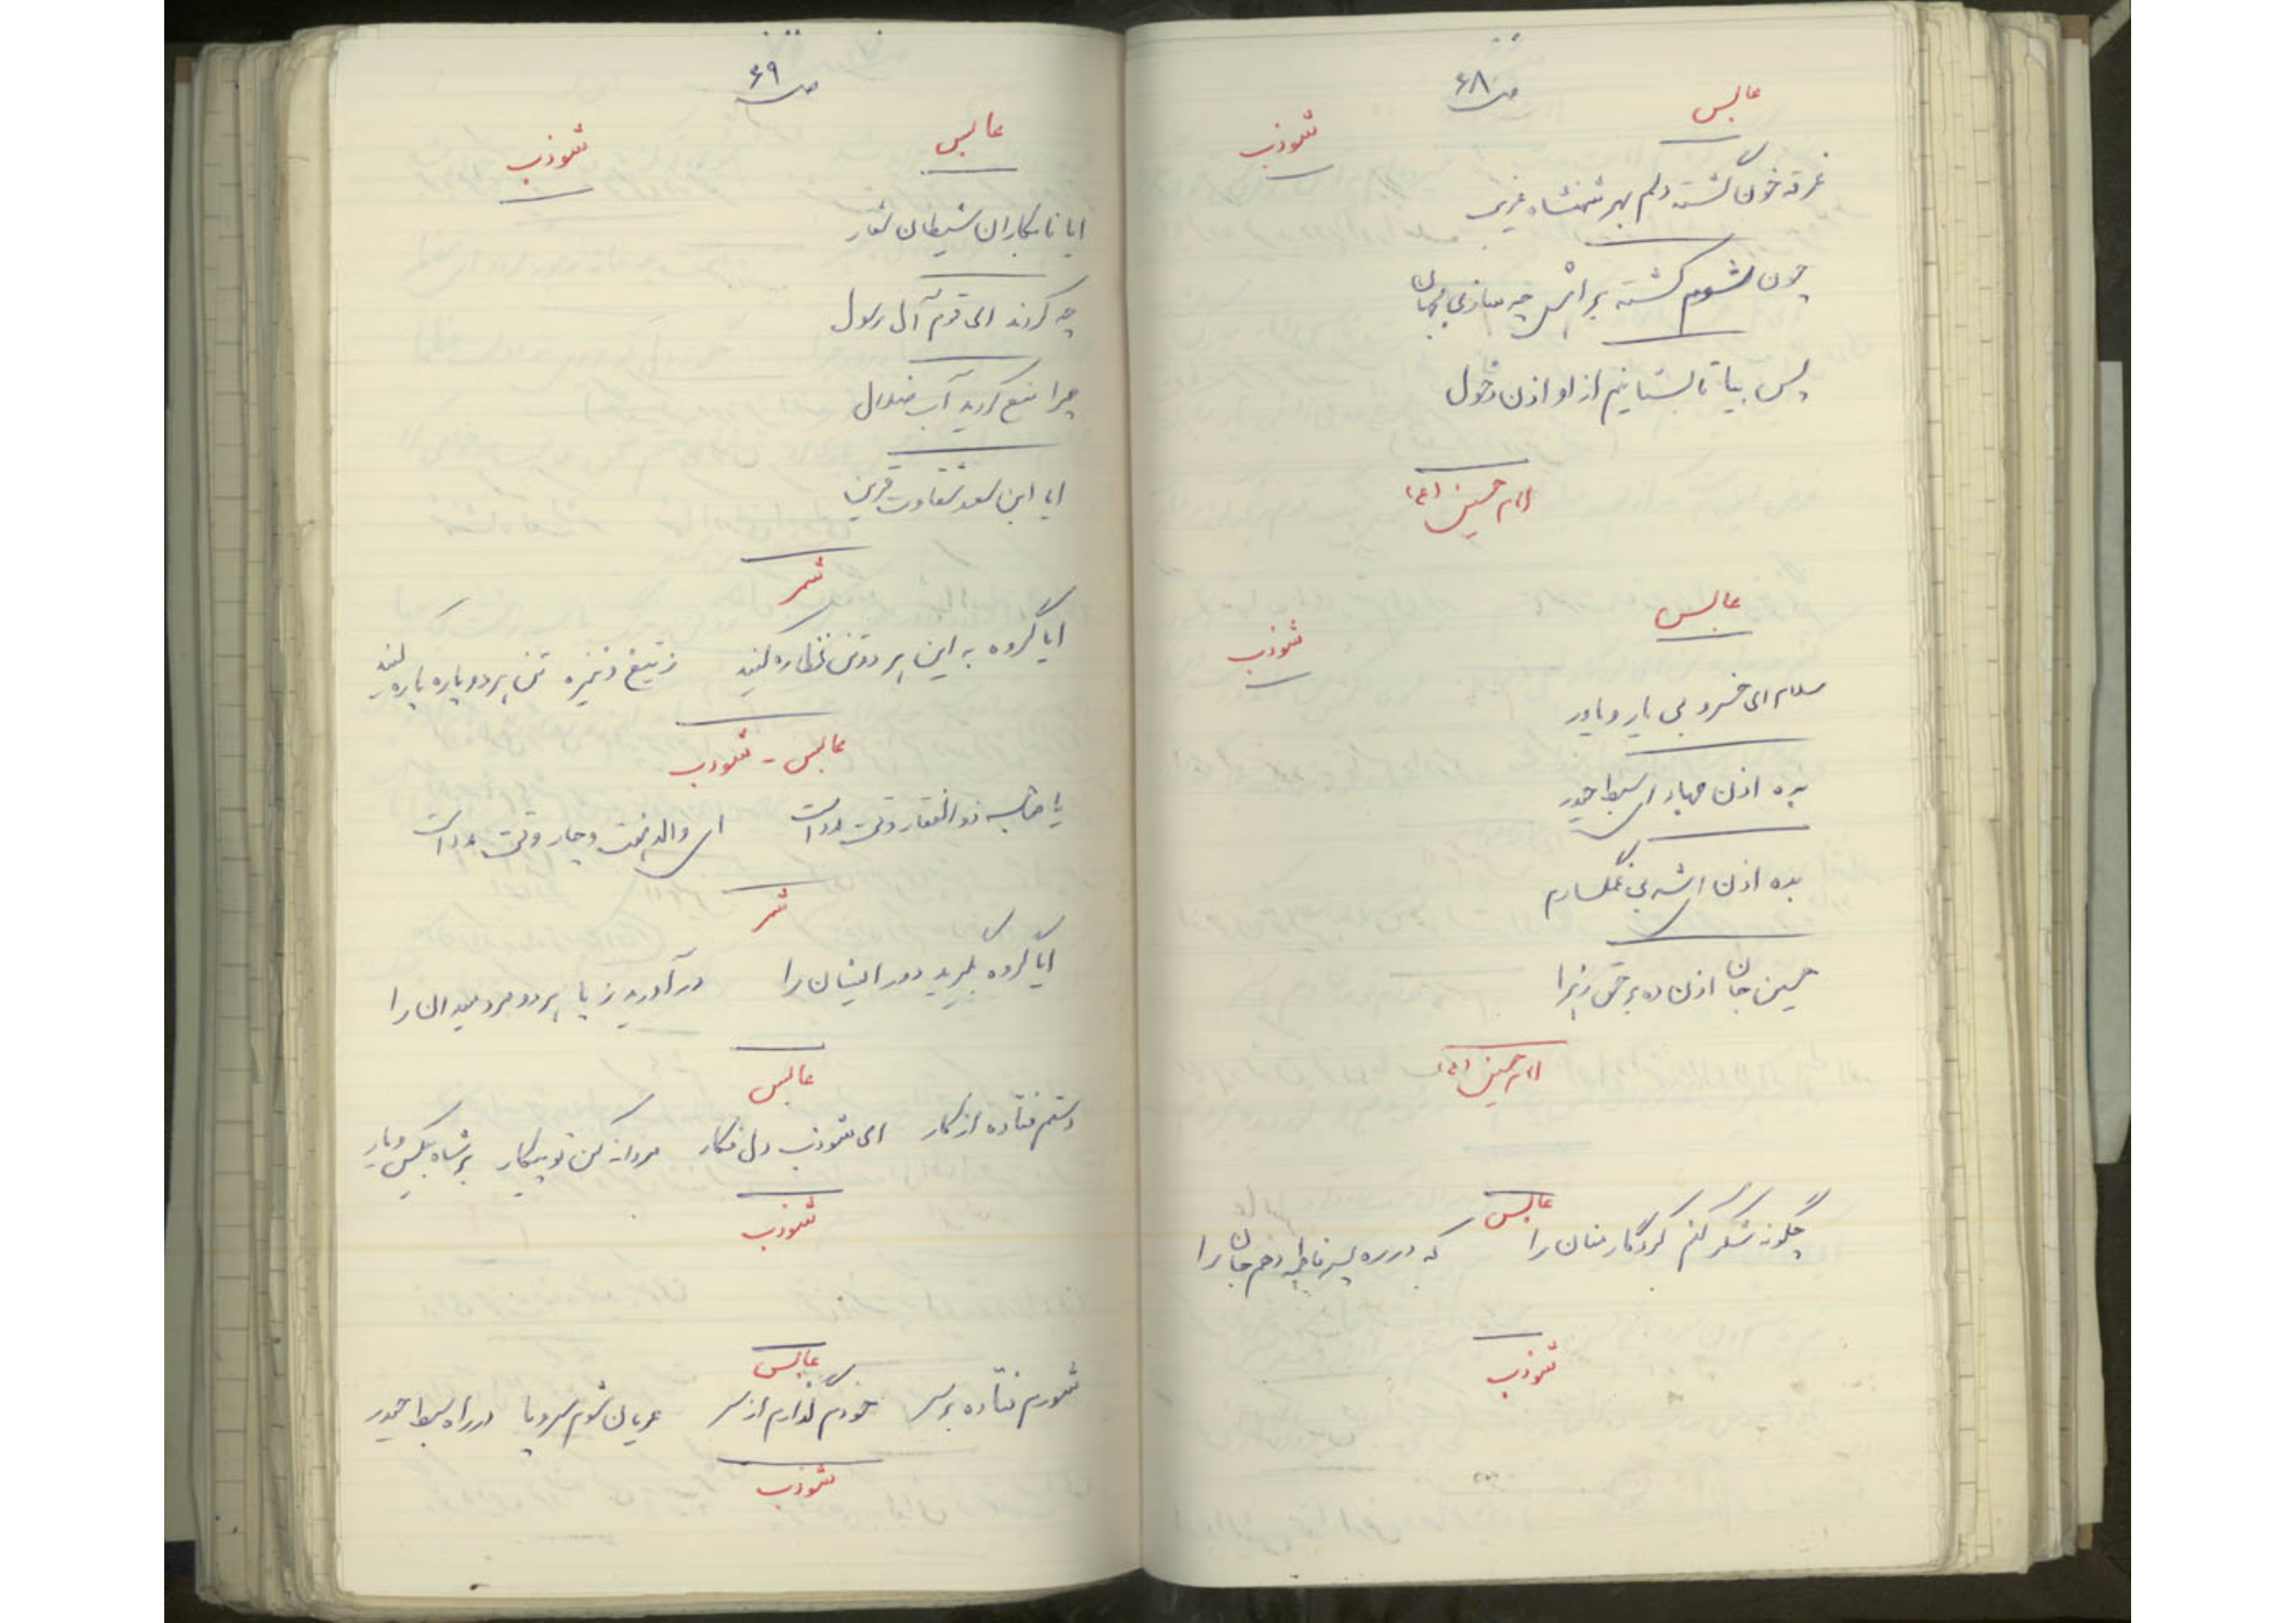 ص ۶۸
عابس
شوذب
غرقه خون گشته دلم بهر شهنشاه غریب
چون شوم کشته براش چه سازی بجهان
پس بیا تا بستانیم از او اذن دخول
امام حسین (ع)
عابس
شوذب
سلام ای خسرو بی یار و یاور
بده اذن جهاد ای سبط حیدر
بده اذن ای شه بی غمگسارم
حسین جان اذن ده بر حق زهرا
امام حسین (ع)
عابس
چگونه شکر کنم کردگار منان را که در ره پسر فاطمه دهم جان را
شوذب
ص ۶۹
عابس
شوذب
ایا نابکاران شیطان شعار
چه کردند ای قوم آل رسول
چرا منع کردید آب
ایا ابن سعد شقاوت قرین
شمر
ایا گروه به این هر دو تن نظاره کنید ز تیغ و نیزه تن هر دو پاره پاره کنید
عابس - شوذب
یا صاحب ذوالفقار وقت مدد است ای والد هشت و چار وقت مدد است
شمر
ایا گروه بگیرید دور ایشان را در آورید ز پا هر دو مرد میدان را
عابس
دستم فتاده از کار ای شوذب دل فکار مردانه کن تو پیکار بر شاه بیکس و یار
شوذب
عابس
شورم فتاده بر سر خودم گذارم از سر عریان شوم سر و پا در راه سبط حیدر
شوذب